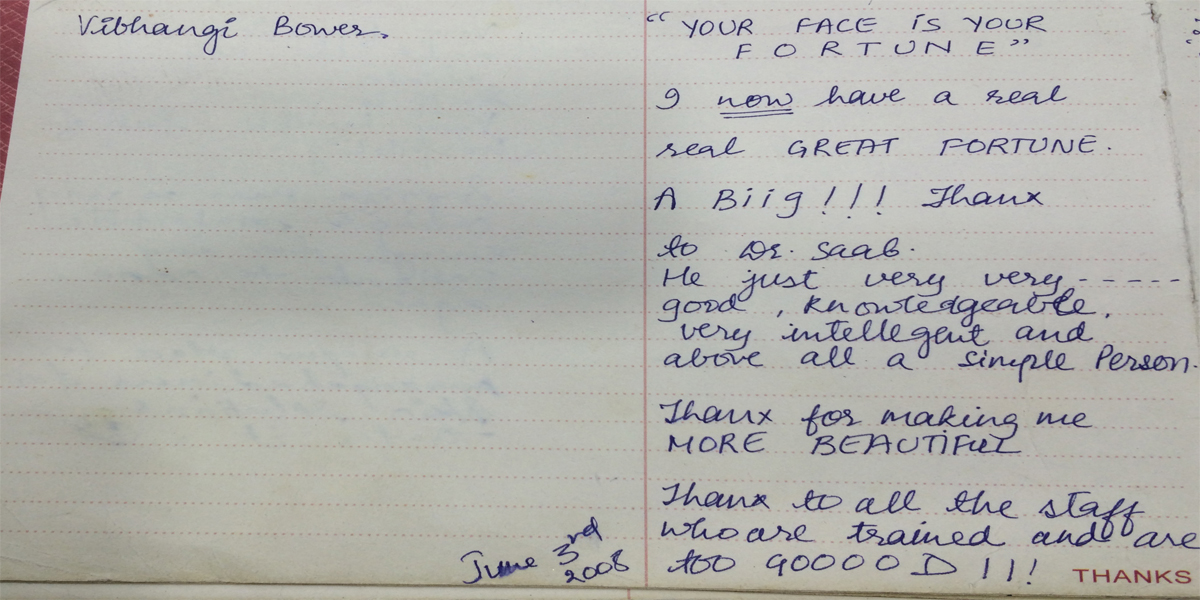 Vibhangi Bower.
"YOUR FACE iS YOUR
FORTUNE"
I now have a real
real GREAT FORTUNE.
A Biig!!! Thanx
to Dr. Saab.
He just very very-----
good, knowledgeable,
very intellegent and
above all a simple Person.
Thanx for making me
MORE BEAUTIFUL
Thanx to all the staff
who are trained and are
too gooooD!!!
June 3rd
2008
THANKS